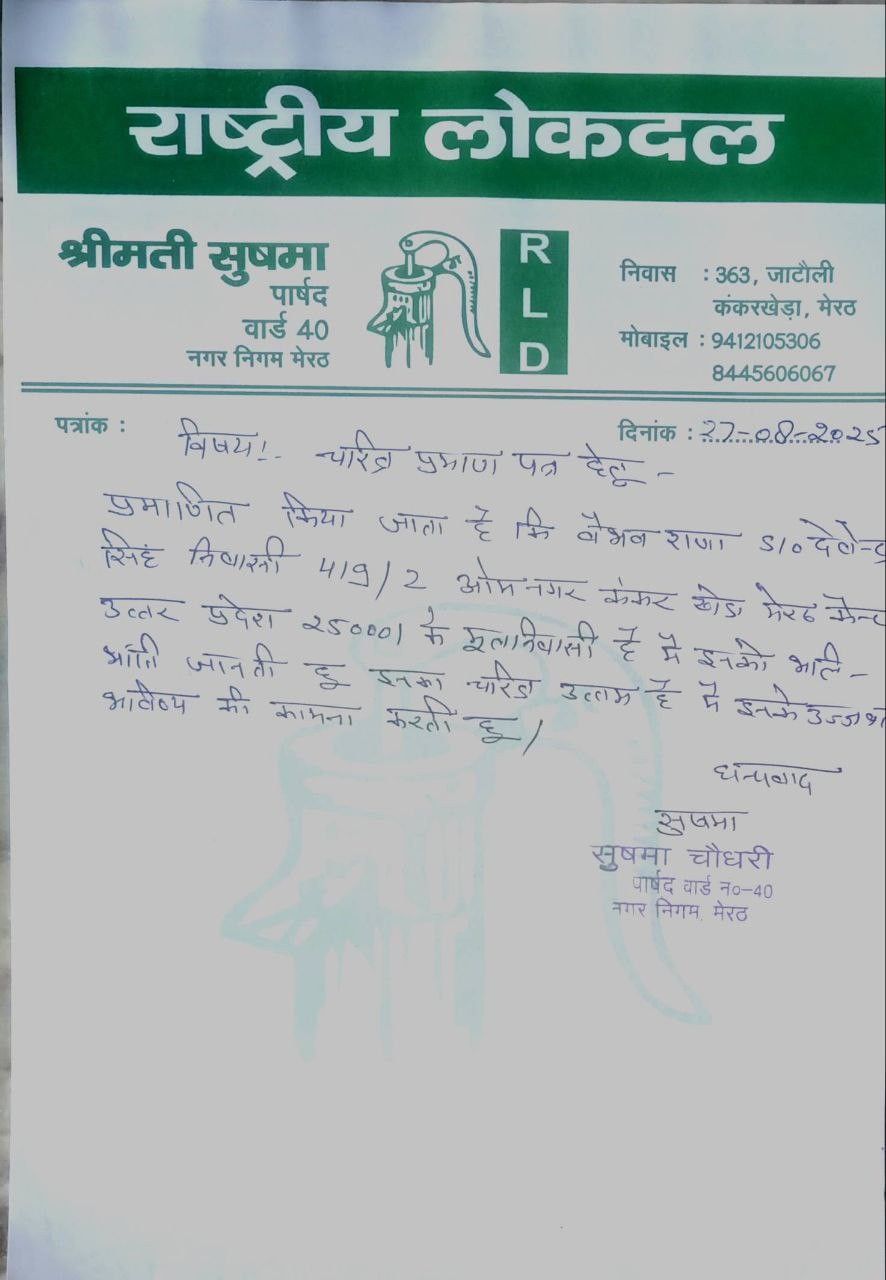 राष्ट्रीय लोकदल
श्रीमती सुषमा
पार्षद
वार्ड 40
नगर निगम मेरठ
R
L
D
निवास : 363, जाटौली
कंकरखेड़ा, मेरठ
मोबाइल : 9412105306
8445606067
पत्रांक :
दिनांक : 27-08-2025
विषय!- चरित्र प्रमाण पत्र हेतू -
प्रमाणित किया जाता है कि वैभव राणा S/o देवेन्द्र
सिंह निवासी 419/2 ओमनगर कंकर खेडा मेरठ कैन्ट
उत्तर प्रदेश 250001 के मूलनिवासी है मै इनको भलि-
भाँति जानती हू इनका चरित्र उत्तम है मै इनके उज्जवल
भविष्य की कामना करती हू/
धन्यवाद
सुषमा
सुषमा चौधरी
पार्षद वार्ड न०-40
नगर निगम, मेरठ